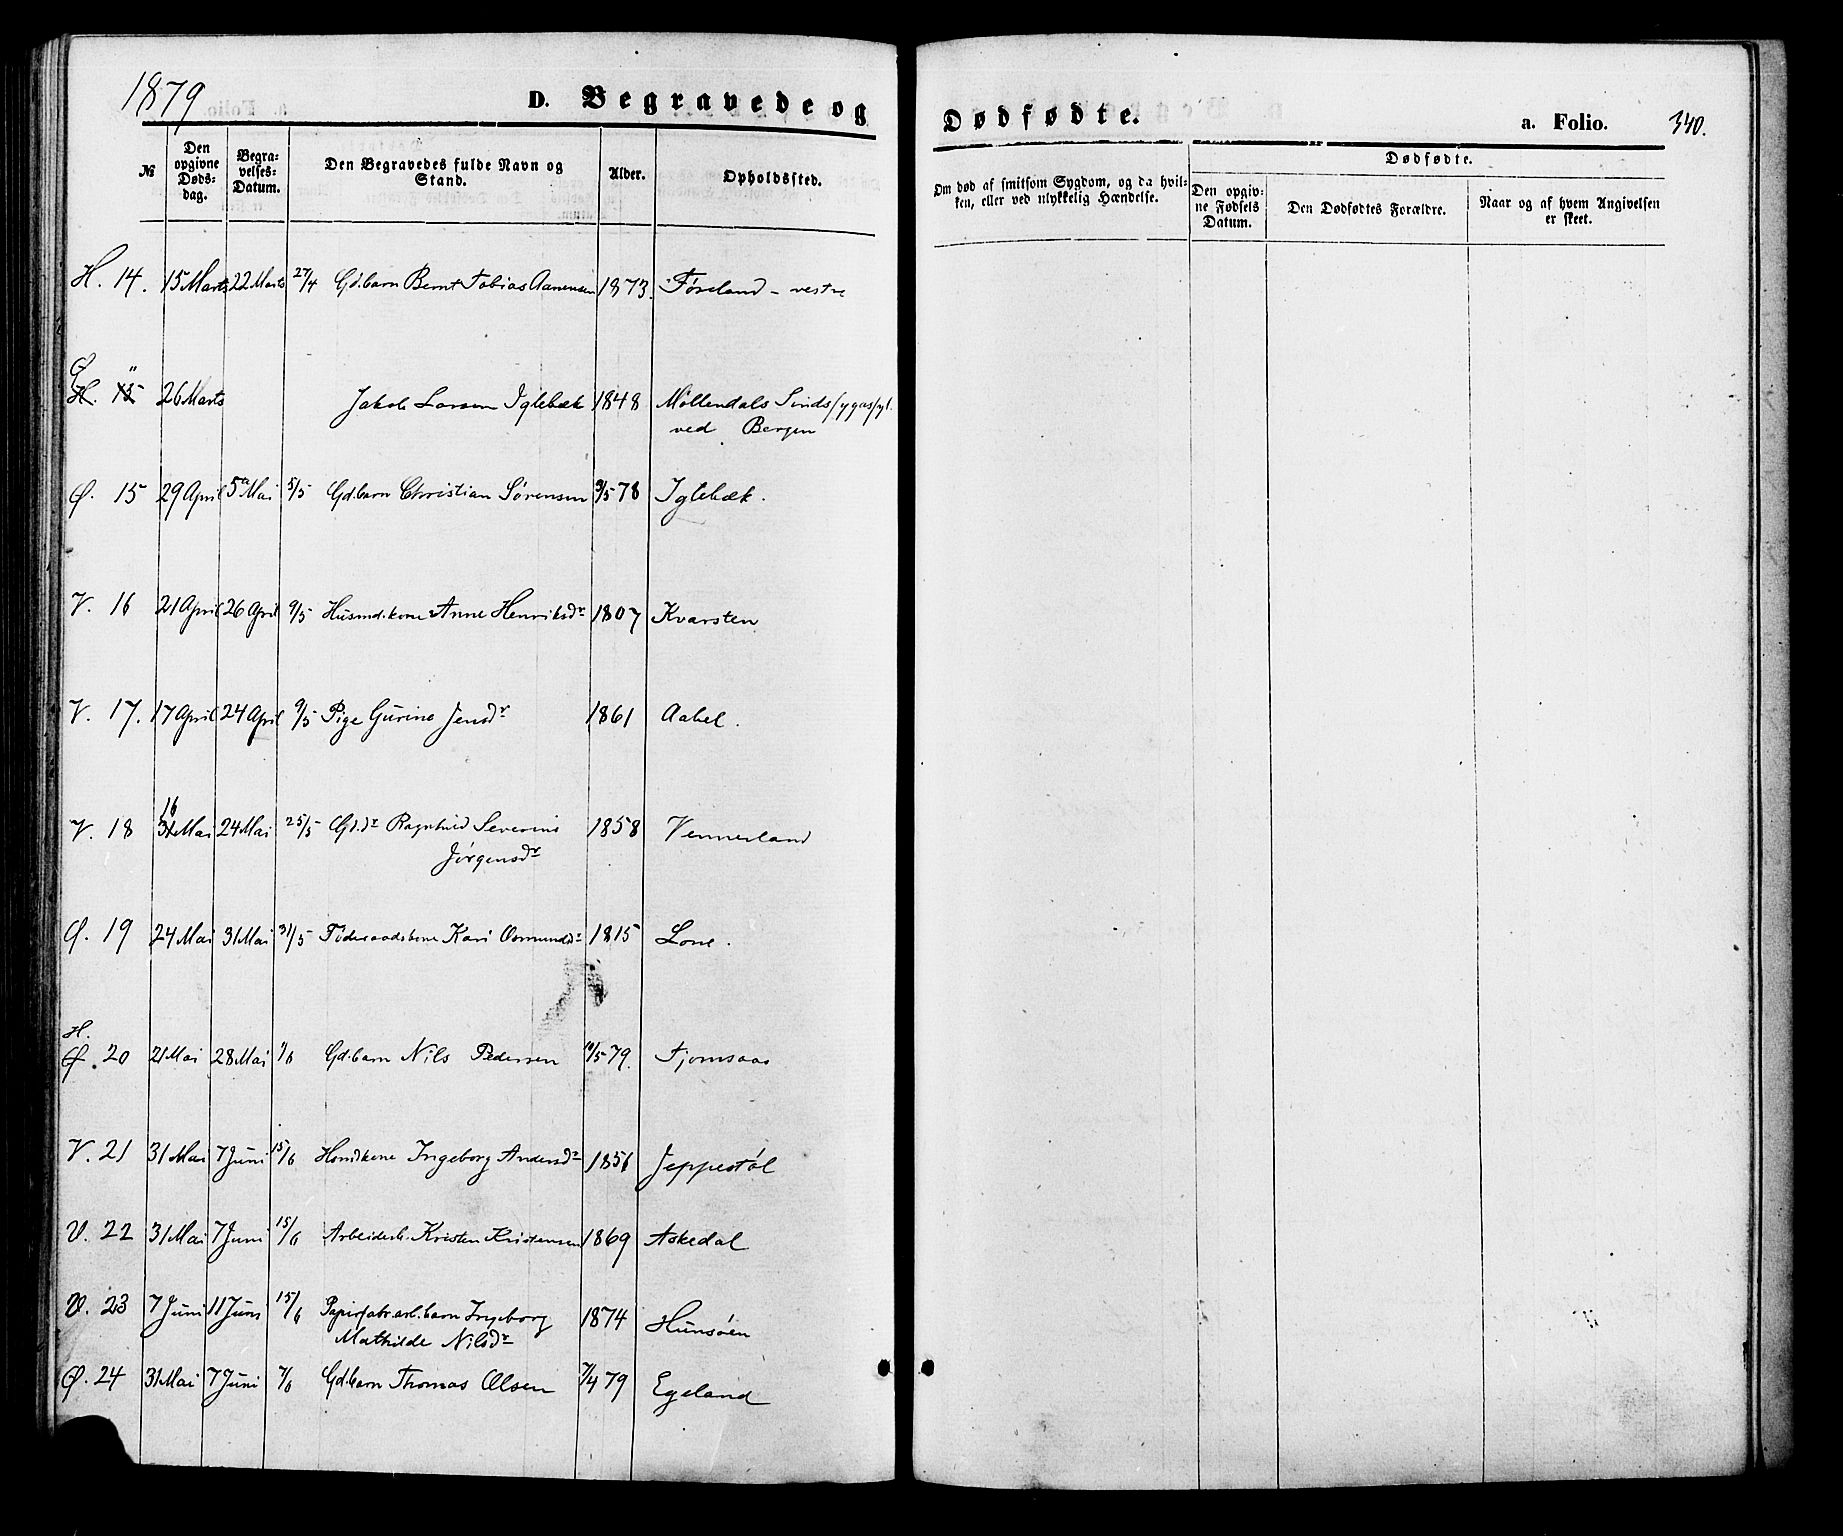 1879
D. Begravede og
Dødfødte.
a. Folio. 340.
№
Den opgivne Døds-dag.
Begra-velses-Datum.
Den Begravedes fulde Navn og Stand.
Alder.
Opholdssted.
Om død af smitsom Sygdom, og da hvil-ken, eller ved ulykkelig Hændelse.
Dødfødte.
Den opgiv-ne Fødsels Datum.
Den Dødfødtes Forældre.
Naar og af hvem Angivelsen er skeet.
H. 14. 15 Marts 22 Marts 27/4 Gd.barn Bernt Tobias Aanensen 1873. Føreland - vestre
Ø. " 26 Marts Jakob Larsen Iglebæk 1848 Møllendals
ved Bergen
Ø. 15 29 April 5 Mai 5/5 Gd.barn Christian Sørensen 3/5 78 Iglebæk.
V. 16 21 April 26 April 9/5 Husmd.kone Anne Henriksdr 1807 Kvarsten
V. 17. 17 April 24 April 9/5 Pige Gurine Jensdr 1861 Aabel.
V. 18 16 Mai 24 Mai 25/5 Gd.dr Ragnhild Severine 1858 Vennesland
Jørgensdr
Ø. 19 24 Mai 31 Mai 31/5 Føderaadskone Kari Osmundsdr 1815 Lone.
H.
Ø. 20 21 Mai 28 Mai 7/6 Gd.barn Nils Pedersen 10/5 79. Fjomsaas
V. 21 31 Mai 7 Juni 15/6 Ingeborg Andersdr 1851 Jeppestøl
V. 22 31 Mai 7 Juni 15/6 Arbeidsb. Kristen Kristensen 1869 Askedal
V. 23 7 Juni 11 Juni 15/6 Papirfabr.arb.barn Ingeborg 1874 Hunsøen
Mathilde Nilsdr
Ø. 24 31 Mai 7 Juni 7/6 Gd.barn Thomas Olsen 7/4 79 Egeland